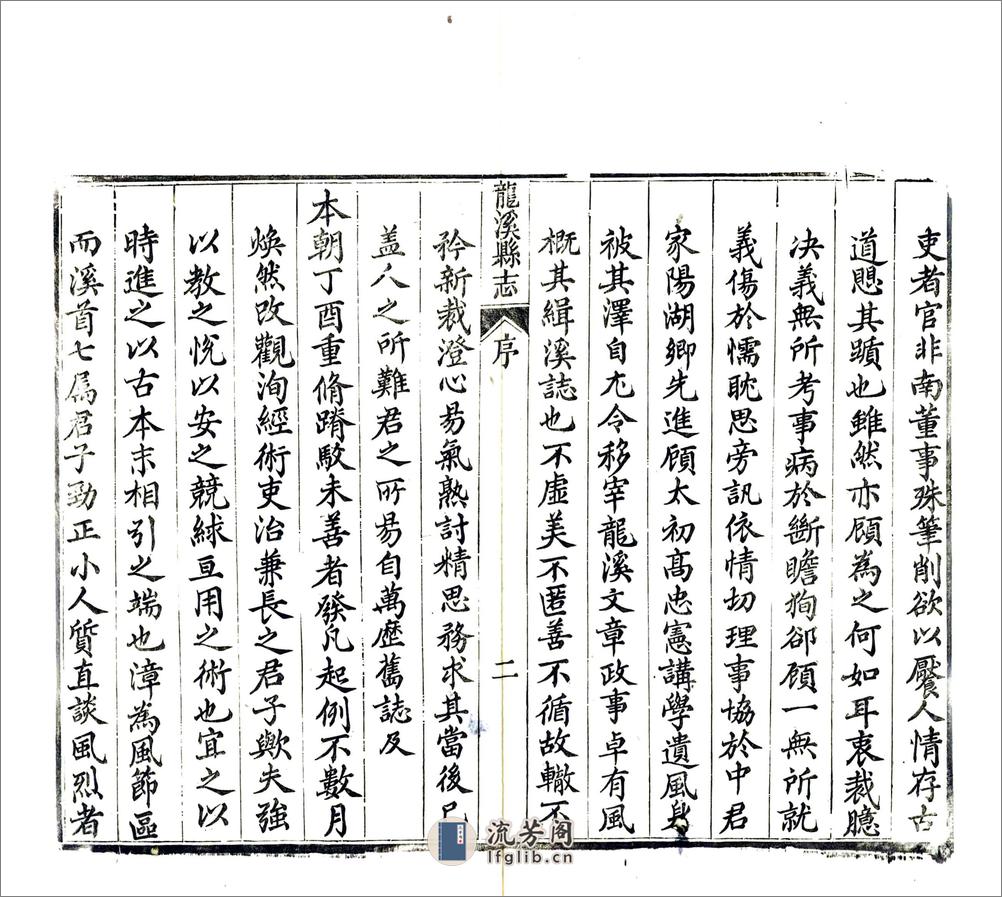 吏者官非南董事殊筆削欲以饜人情存古
道愳其躓也雖然亦顧為之何如耳衷裁臆
决義無所考事病於斷瞻狥郤顧一無所就
義傷於懦耽思旁訊依情切理事協於中君
家陽湖鄉先進顧太初髙忠憲講學遺風身
被其澤自尤令移宰龍溪文章政事卓有風
概其緝溪誌也不虛美不匿善不循故轍不
龍溪縣志 序 二
矜新裁澄心易氣熟討精思務求其當後已
盖人之所難君之所易自萬歷舊誌及
本朝丁酉重脩踳駁未善者發凡起例不數月
煥然改觀洵經術吏治兼長之君子歟夫強
以教之悅以安之競絿亘用之術也宜之以
時進之以古本末相引之端也漳為風節區
而溪首七属君子勁正小人質直談風烈者
流芳阁
lfglib.cn